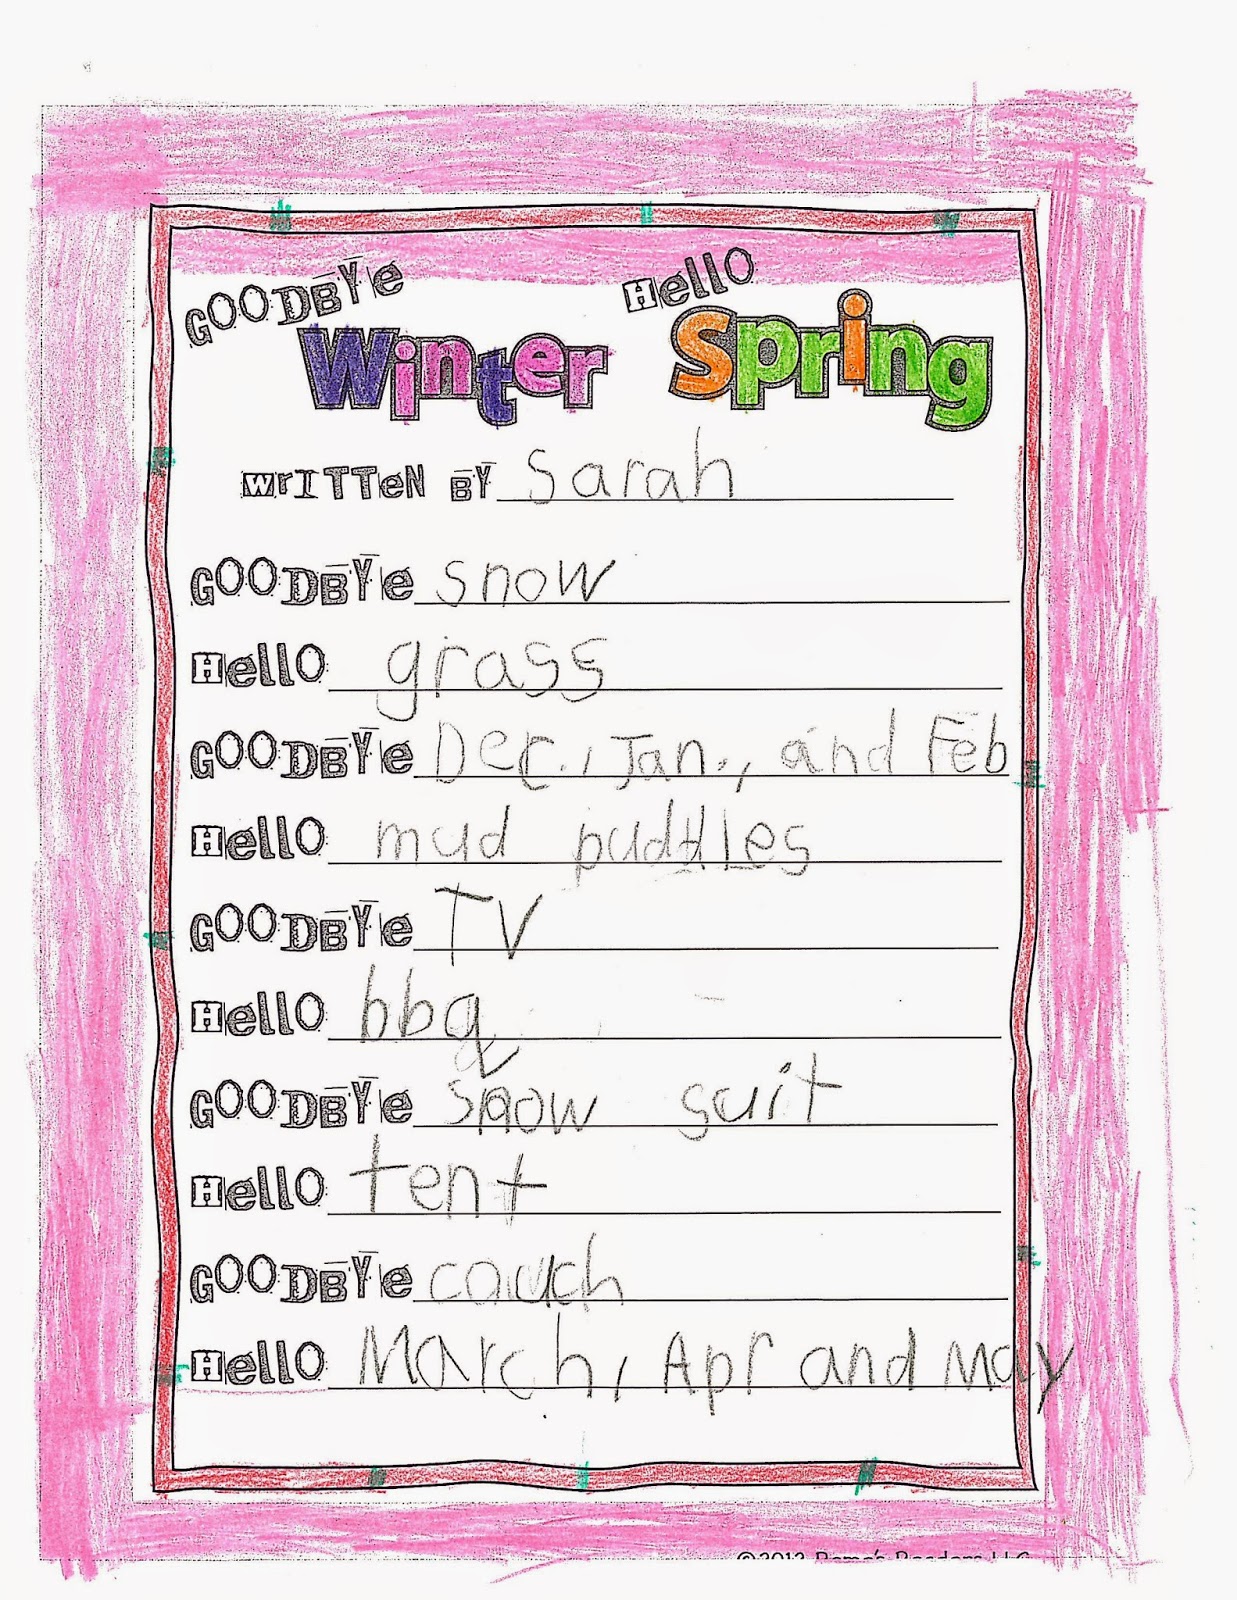 GOODBYE Hello
Winter Spring
WRITTEN BY Sarah
GOODBYE snow
Hello grass
GOODBYE Dec., Jan., and Feb
Hello mud puddles
GOODBYE TV
Hello bbq
GOODBYE snow suit
Hello tent
GOODBYE couch
Hello March, Apr and May
©2013 Reader's LLC